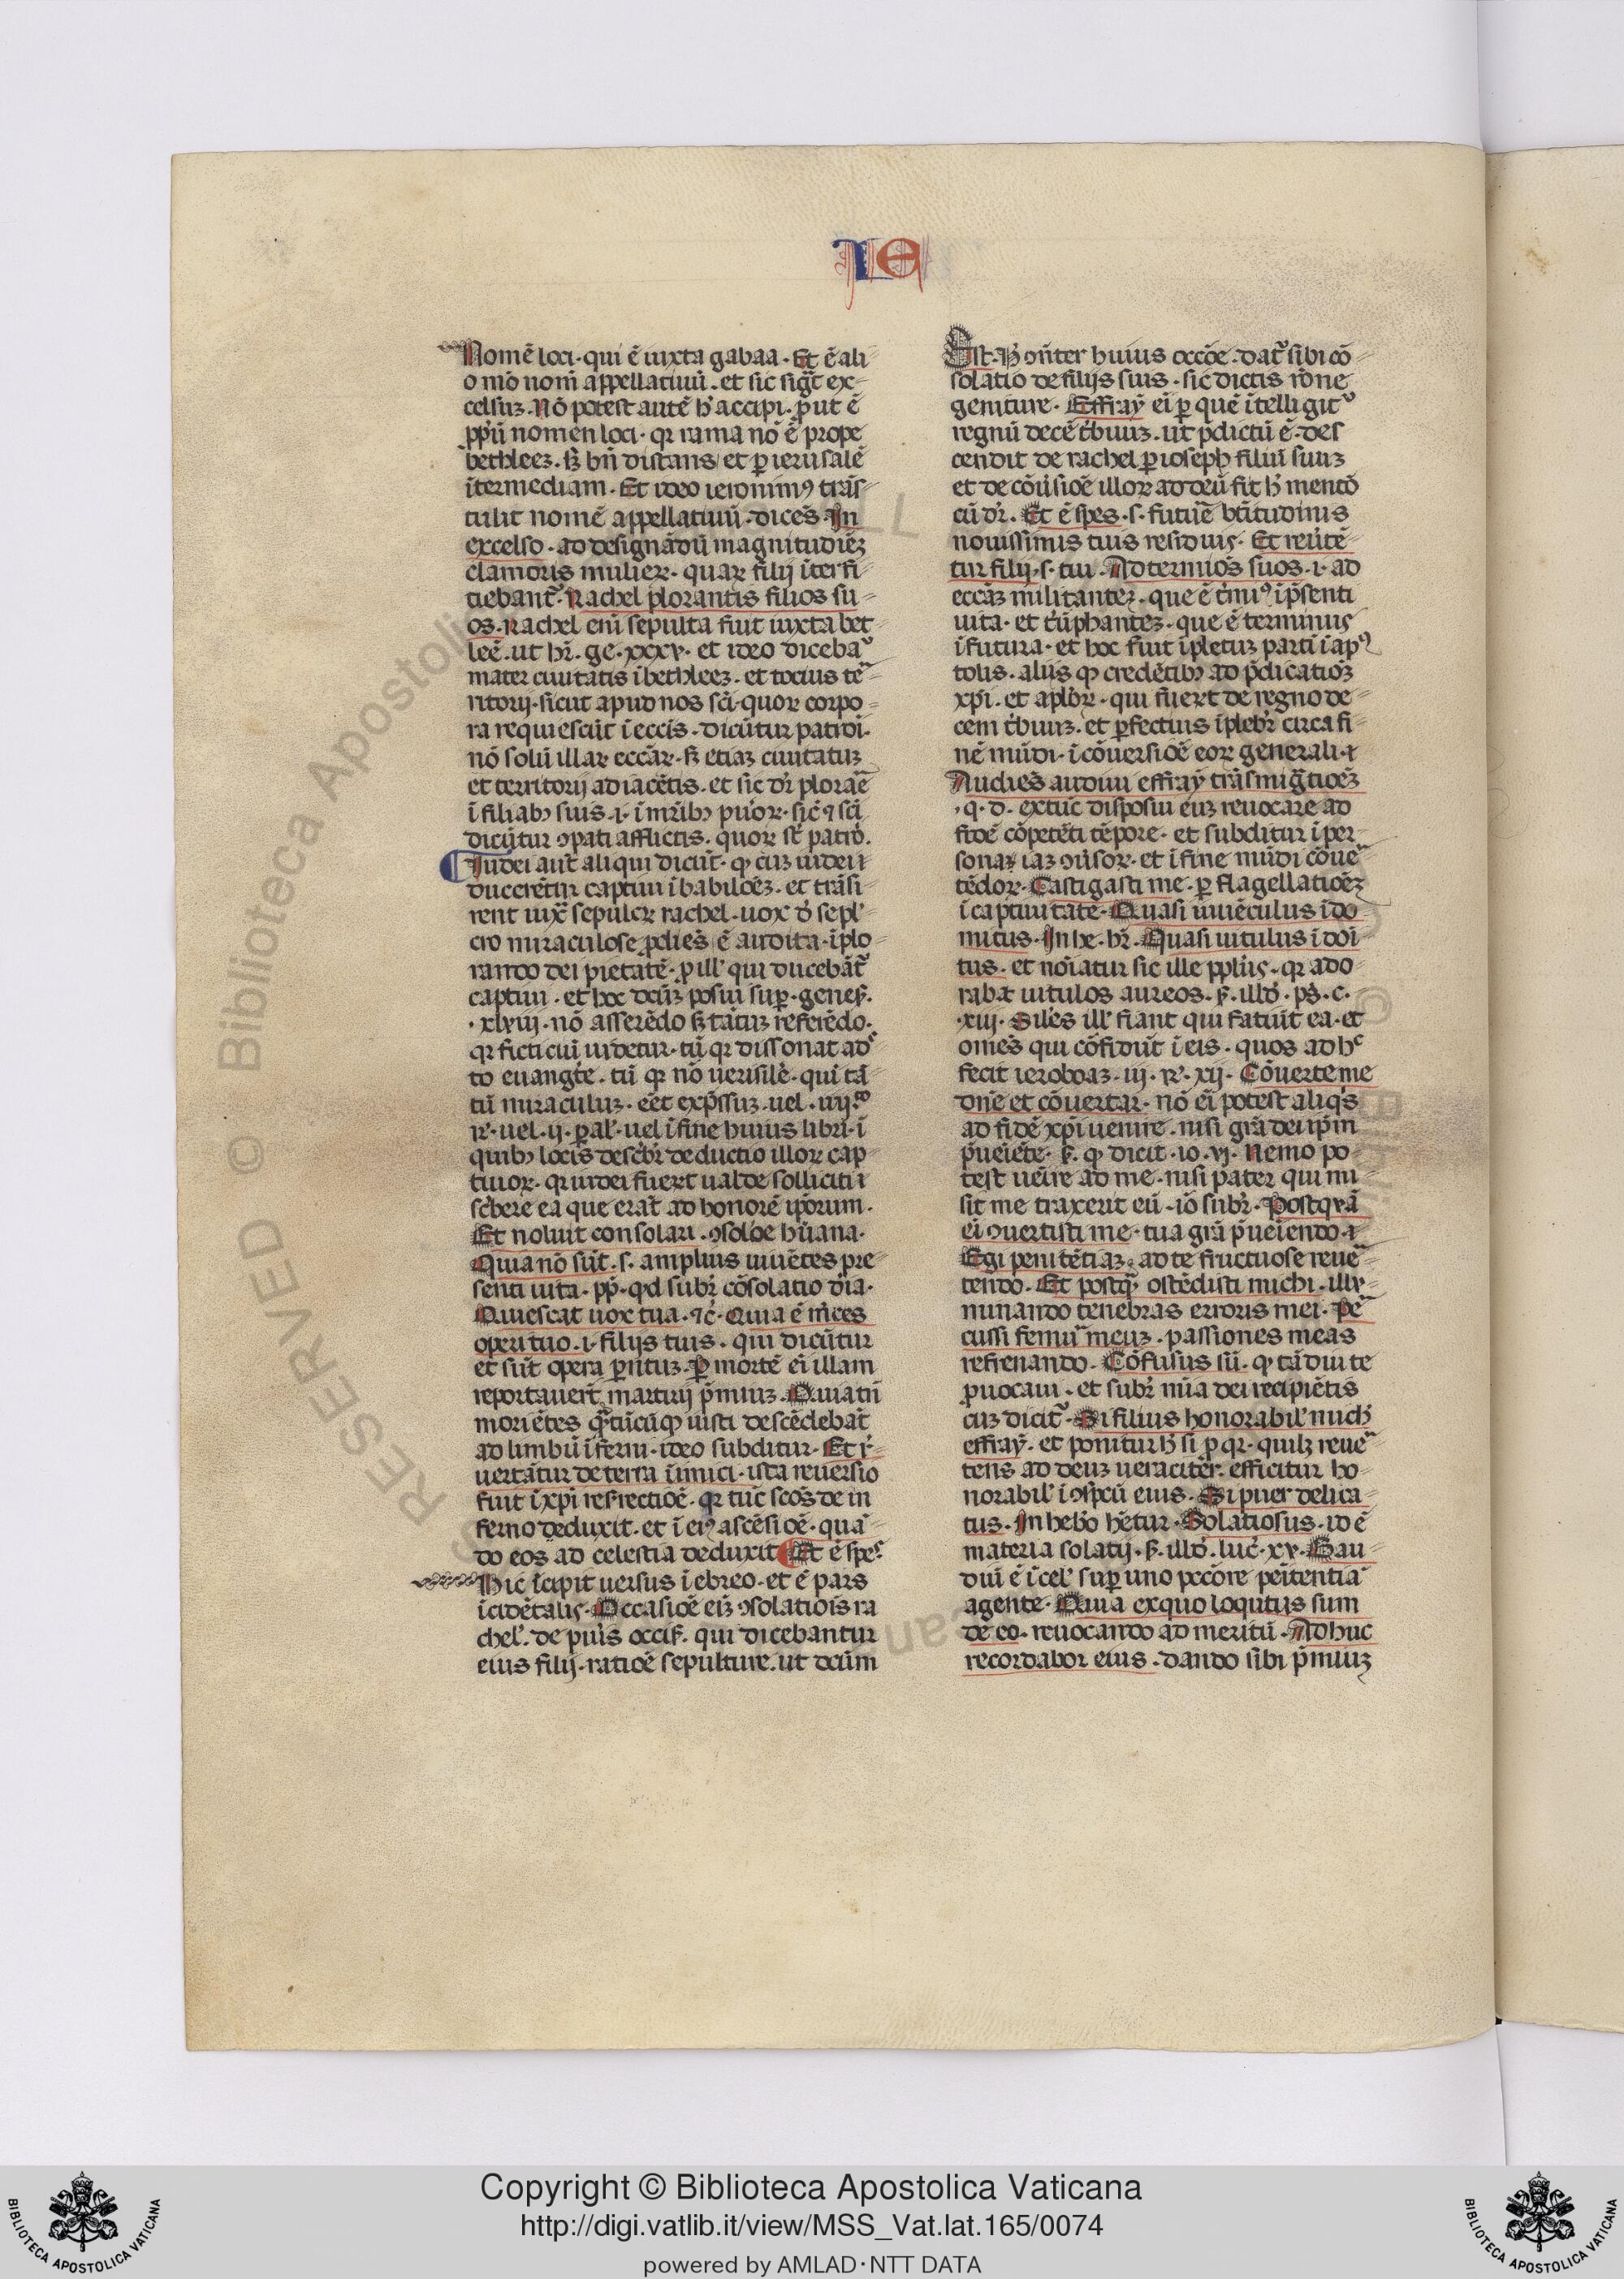 IE
Nomē loci · qui ē iuxta gabaa · Et ē ali-
o mō nomē appellatiuū · et sic sig̃t ex-
celsuz · Nō potest autē h̾ accipi · put ē
ppriū nomen loci · qr rama nō ē prope
bethleez · sz bñ distans et p ierusalē
ītermediam · Et ideo ieronimꝰ trās-
tulit nomē appellatiuū · dicēs · In
excelso · ad designādū magnitudiēz
clamoris mulierꝝ · quarꝝ filij īterfi-
ciebant̾ · Rachel plorantis filios su-
os · Rachel eni sepulta fuit iuxta bet-
leē · ut hr̄ · ge · xxxv · et ideo diceba
mater ciuitatis ī bethleez · et totius te
ritorij · sicut apud nos sc̄i · quorꝝ corpo-
ra requiescūt ī ecc̄is · dicūtur patrōi ·
nō solū illarꝝ ecc̄arꝝ · sz etiaz ciuitatuz
et territorij adiacētis · et sic dr̄ plorae
ī filiabꝫ suis · i · ī mr̄ibꝫ pu̾orꝝ · sic̄ ⁊ sc̄i
dicūtur ꝯpati afflictis · quorꝝ st̄ patro̾
Iudei aut̄ aliqui dicūt · ꝙ cuz iudei ī
ducerētur captiui ī babiloēz · et trāsi-
rent iux̄ sepulcꝝ rachel · uox d̾ sepl̾-
cro miraculose pdies̾ ē audita · īplo-
rando dei pietatē · p ill̾ qui ducebāt̾
captiui · et hoc dcūz posui sup · genes̾ ·
· xlviij · nō asserēdo sz tātuz referēdo ·
qr ficticiū uidetur · tū qr dissonat ad
to euangl̾e · tū qr nō uerisil̾e · qui tā
tū miraculuz · eēt exp̄ssuz · uel · iiij ·
rͤ · uel · ij · pal̾ · uel ī fine huius libri · ī
quibꝫ locis desc̾br̾ deductio illorꝝ cap-
tiuorꝝ · qr iudei fuer̄t ualde solliciti ī
sc̾bere ea que erāt ad honorē ip̄orum ·
Et noluit consolari · ꝯsol̾oe hūana ·
Quia nō sūt · s · amplius uiuētes pre
senti uita · pp̾ · qd subr̾ cōsolatio diā ·
Quiescat uox tua · ⁊c̾ · Quia ē m̄ces
operi tuo · i · filijs tuis · qui dicūtur
et sūt opera parētuz · P mortē ei illam
reportauer̄t martirij p̄miuz · Quia tñ
moriētes q̄ntūcūqꝫ iusti descēdebāt
ad limbū īferni · ideo subditur · Et r̾-
uertātur de terra īimici · ista reuersio
fuit ī xp̄i resrectiōē · qr tūc sc̄os de in
ferno deduxit · et ī eiꝰ ascēsiōē · quā-
do eos ad celestia deduxit · Et ē spes
Hic īcipit uersus ī ebreo · et ē pars
īcidētalis · Occasiōē eiz̄ ꝯsolatiōis ra
chel̾ · de pu̾is occis̾ · qui dicebantur
eius filij · ratiōē sepulture · ut dcūm
Est · H̾ ꝯn̄ter huius occ̄oe · dat̾ sibi cō-
solatio de filijs suis · sic dictis r̄one
geniture · Effray ei p quē ītelligit̾
regnū decē t̾buuz · ut p̄dictū ē · des
cendit de rachel p ioseph filiū suuz
et de cōu̾siōē illorꝝ ad deū fit h̾ mentō
cū dr̄ · Et ē spes · s · future bt̄itudinis
nouissimis tuis residuis · Et reu̾tē-
tur filij · s · tui · Ad termiōs suos · i · ad
ecc̄az militantez · que ē t̾miꝰ ī p̄senti
uita · et t̾ūphantez · que ē terminus
ī futura · et hoc fuit īpletuz parti ī apꝰ
tolis · alijs qꝫ credētibꝫ ad p̄dicatiōz
xp̄i · et apl̾orꝝ · qui fuer̄t de regno de-
cem t̾buuz · et pfectius īplebr̾ circa fi-
nē mūdi · ī cōuersiōē eorꝝ generali · ⁊
Audiēs audiui effray trāsmig̃tiōēz
· q · d · ex tūc disposui euz reuocare ad
fidē cōpetēti tēpore · et subditur ī per-
sonaz iaz ꝯu̾sorꝝ · et ī fine mūdi cōue
tēdorꝝ · Castigasti me · p flagellatiōēz
ī captiuitate · Quasi iuuēculus īdo
mitus · In he · hr̄ · Quasi uitulus īdoi
tus · et noīatur sic ille pp̄lus · qr ado-
rabat uitulos aureos · s̾ · illd̾ · ps̾ · c ·
· xiij · Sil̾es ill̾ fiant qui faciūt ea · et
omēs qui cōfidūt ī eis · quos ad hͨ
fecit ieroboaz · iij · rͤ · xij · Cōuerte me
dn̄e et cōuertar · nō ei potest aliqs
ad fidē xp̄i uenire · nisi grā dei ip̄m
p̄ueiēte · s̾ · qꝫ dicit · io · vj · Nemo po-
test ueīre ad me · nisi pater qui mi-
sit me traxerit eū · iō subr̾ · Postqꝫā
ei ꝯuertisti me · tua grā p̄ueiendo · ⁊
Egi penitētiaz · ad te fructuose reue
tendo · Et postq̄ ostēdisti michi · illu-
minando tenebras erroris mei · Pe
cussi femu meuz · passiones meas
refrenando · Cōfusus sū · qꝫ tādiu te
puocaui · et subr̾ mīa dei recipiētis
cuz dicit̾ · Si filius honorabil̾ mich̾
effray · et ponitur h̾ si p qr · quilz reue
tens ad deuz ueraciter · efficitur ho-
norabil̾ ī ꝯspcū eius · Si puer delica-
tus · In heb̾o hētur · Solatiosus · id ē
materia solatij · s̾ · illd̾ · luc̾ · xv · Gau-
diū ē ī cel̾ sup uno pccōre peītentiā
agente · Quia ex quo loqutus sum
de eo · reuocando ad meritū · Adhuc
recordabor eius · dando sibi p̄miuz
© Biblioteca Apostolica
RESERVED
Copyright © Biblioteca Apostolica Vaticana
http://digi.vatlib.it/view/MSS_Vat.lat.165/0074
powered by AMLAD·NTT DATA
BIBLIOTECA APOSTOLICA VATICANA
BIBLIOTECA APOSTOLICA VATICANA